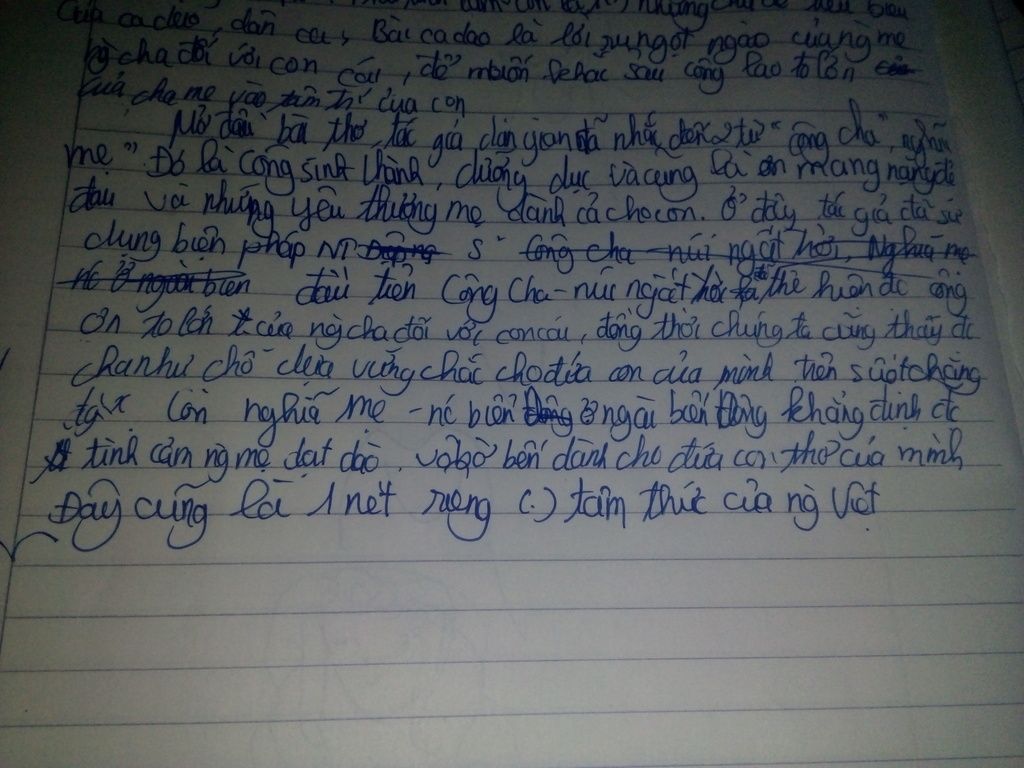 của ca dao, dân ca, Bài ca dao là lời ru ngọt ngào của ng mẹ
cha đối với con cái, để muốn khắc sâu công lao to lớn
của cha mẹ vào tâm trí của con
Mở đầu bài thơ, tác giả dân gian đã nhắc đến 2 từ "công cha", nghĩa
mẹ" Đó là công sinh thành, dưỡng dục và cũng là ơn mang nặng đẻ
đau và những yêu thương mẹ dành cả cho con. Ở đây tác giả đã sử
dụng biện pháp NT S² Công cha - núi ngất trời, Nghĩa mẹ
nc ở ngoài biển đầu tiên Công cha - núi ngất trời đã thể hiện đc công
ơn to lớn của ng cha đối với con cái, đồng thời chúng ta cũng thấy đc
cha như chỗ dựa vững chắc cho đứa con của mình trên suốt chặng
Còn nghĩa mẹ - nc biển ở ngoài biển Đông khẳng định đc
tình cảm ng mẹ dạt dào, vô bờ bến dành cho đứa con thơ của mình
Đây cũng là 1 nét riêng (.) tâm thức của ng Việt